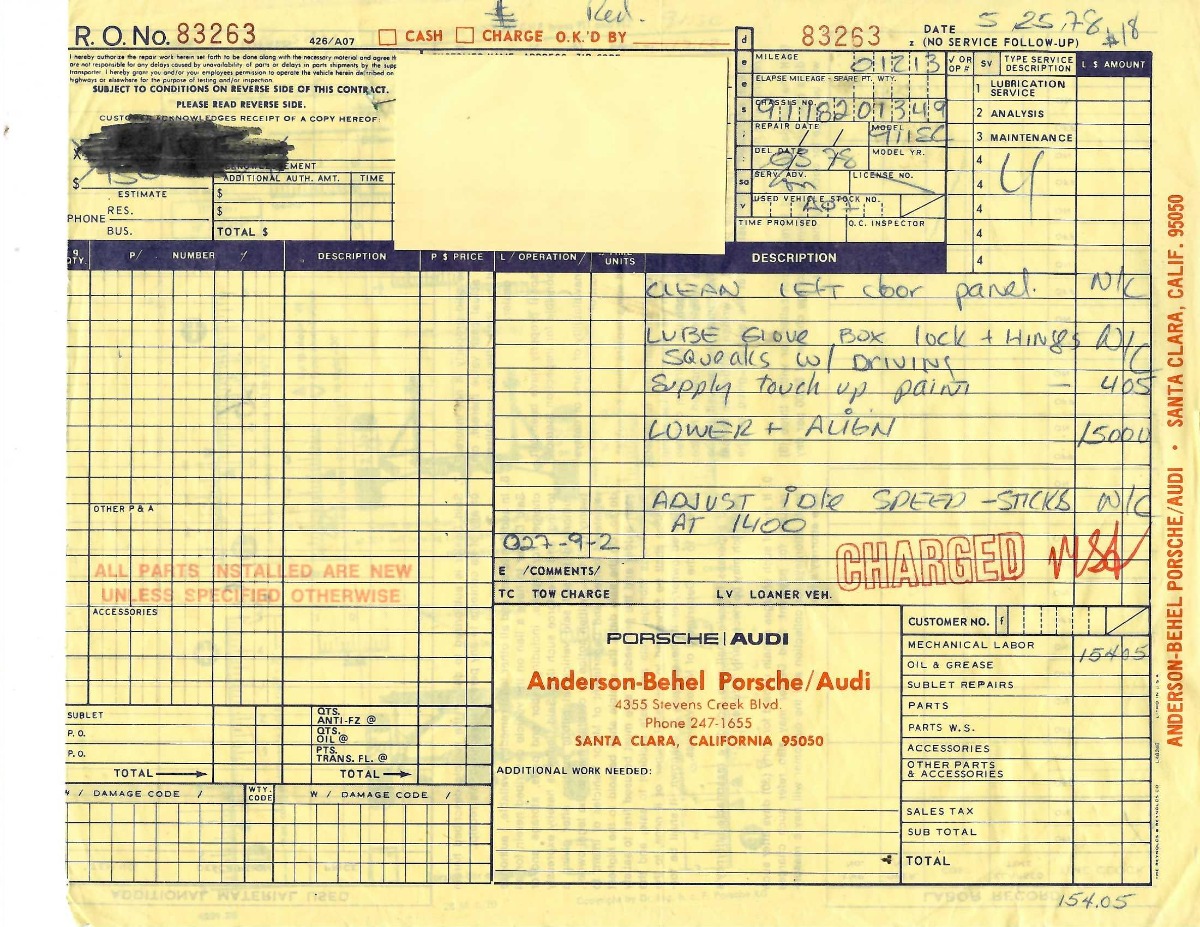 Red.
R. O. No. 83263 426/A07 CASH CHARGE O.K.'D BY
83263 DATE 5 25, 78 $18
(NO SERVICE FOLLOW-UP)
I hereby authorize the repair work herein set forth to be done along with the necessary material and agree
are not responsible for any delays caused by unavailability of parts or delays in parts shipments by the
transporter. I hereby grant you and/or your employees permission to operate the vehicle herein described on
highways or elsewhere for the purpose of testing and/or inspection.
SUBJECT TO CONDITIONS ON REVERSE SIDE OF THIS CONTRACT.
PLEASE READ REVERSE SIDE.
CUSTOMER ACKNOWLEDGES RECEIPT OF A COPY HEREOF:
X
$
ESTIMATE
ADDITIONAL AUTH. AMT. TIME
$
$
TOTAL $
PHONE RES.
BUS.
MILEAGE 01213
ELAPSE MILEAGE - SPARE PT. WTY.
CHASSIS NO. 9118201349
REPAIR DATE / / MODEL 911SC
DEL DATE 03 78 MODEL YR.
SERV. ADV. LICENSE NO.
USED VEHICLE STOCK NO.
TIME PROMISED O.C. INSPECTOR
√ OR OP # SV TYPE SERVICE DESCRIPTION L $ AMOUNT
1 LUBRICATION SERVICE
2 ANALYSIS
3 MAINTENANCE
4
4 4
4
4
4
QTY. P/ NUMBER / DESCRIPTION P $ PRICE L / OPERATION / UNITS DESCRIPTION
CLEAN LEFT door panel. N/C
LUBE Glove BOX lock + HINGES N/C
SQueaks w/ DRIVING
Supply touch up paint — 405
LOWER + ALIGN 15000
ADJUST iDle SPEED -STICKS N/C
AT 1400
027-9-2
CHARGED
OTHER P & A
ALL PARTS INSTALLED ARE NEW
UNLESS SPECIFIED OTHERWISE
ACCESSORIES
E /COMMENTS/
TC TOW CHARGE LV LOANER VEH.
PORSCHE | AUDI
Anderson-Behel Porsche/Audi
4355 Stevens Creek Blvd.
Phone 247-1655
SANTA CLARA, CALIFORNIA 95050
ADDITIONAL WORK NEEDED:
SUBLET
P. O.
P. O.
TOTAL
QTS. ANTI-FZ @
QTS. OIL @
PTS. TRANS. FL. @
TOTAL
/ DAMAGE CODE / WTY. CODE W / DAMAGE CODE /
CUSTOMER NO. f
MECHANICAL LABOR 154.05
OIL & GREASE
SUBLET REPAIRS
PARTS
PARTS W.S.
ACCESSORIES
OTHER PARTS & ACCESSORIES
SALES TAX
SUB TOTAL
TOTAL
154.05
ANDERSON-BEHEL PORSCHE/AUDI • SANTA CLARA, CALIF. 95050